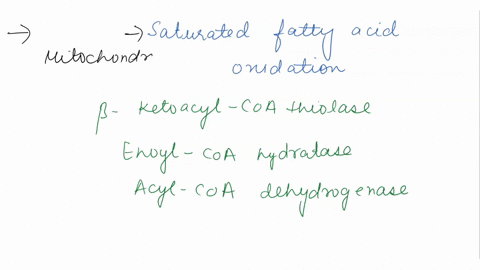 → → Saturated fatty acid
Mitochondr
oxidation
β- Ketoacyl-CoA thiolase
Enoyl-CoA hydratase
Acyl-CoA dehydrogenase